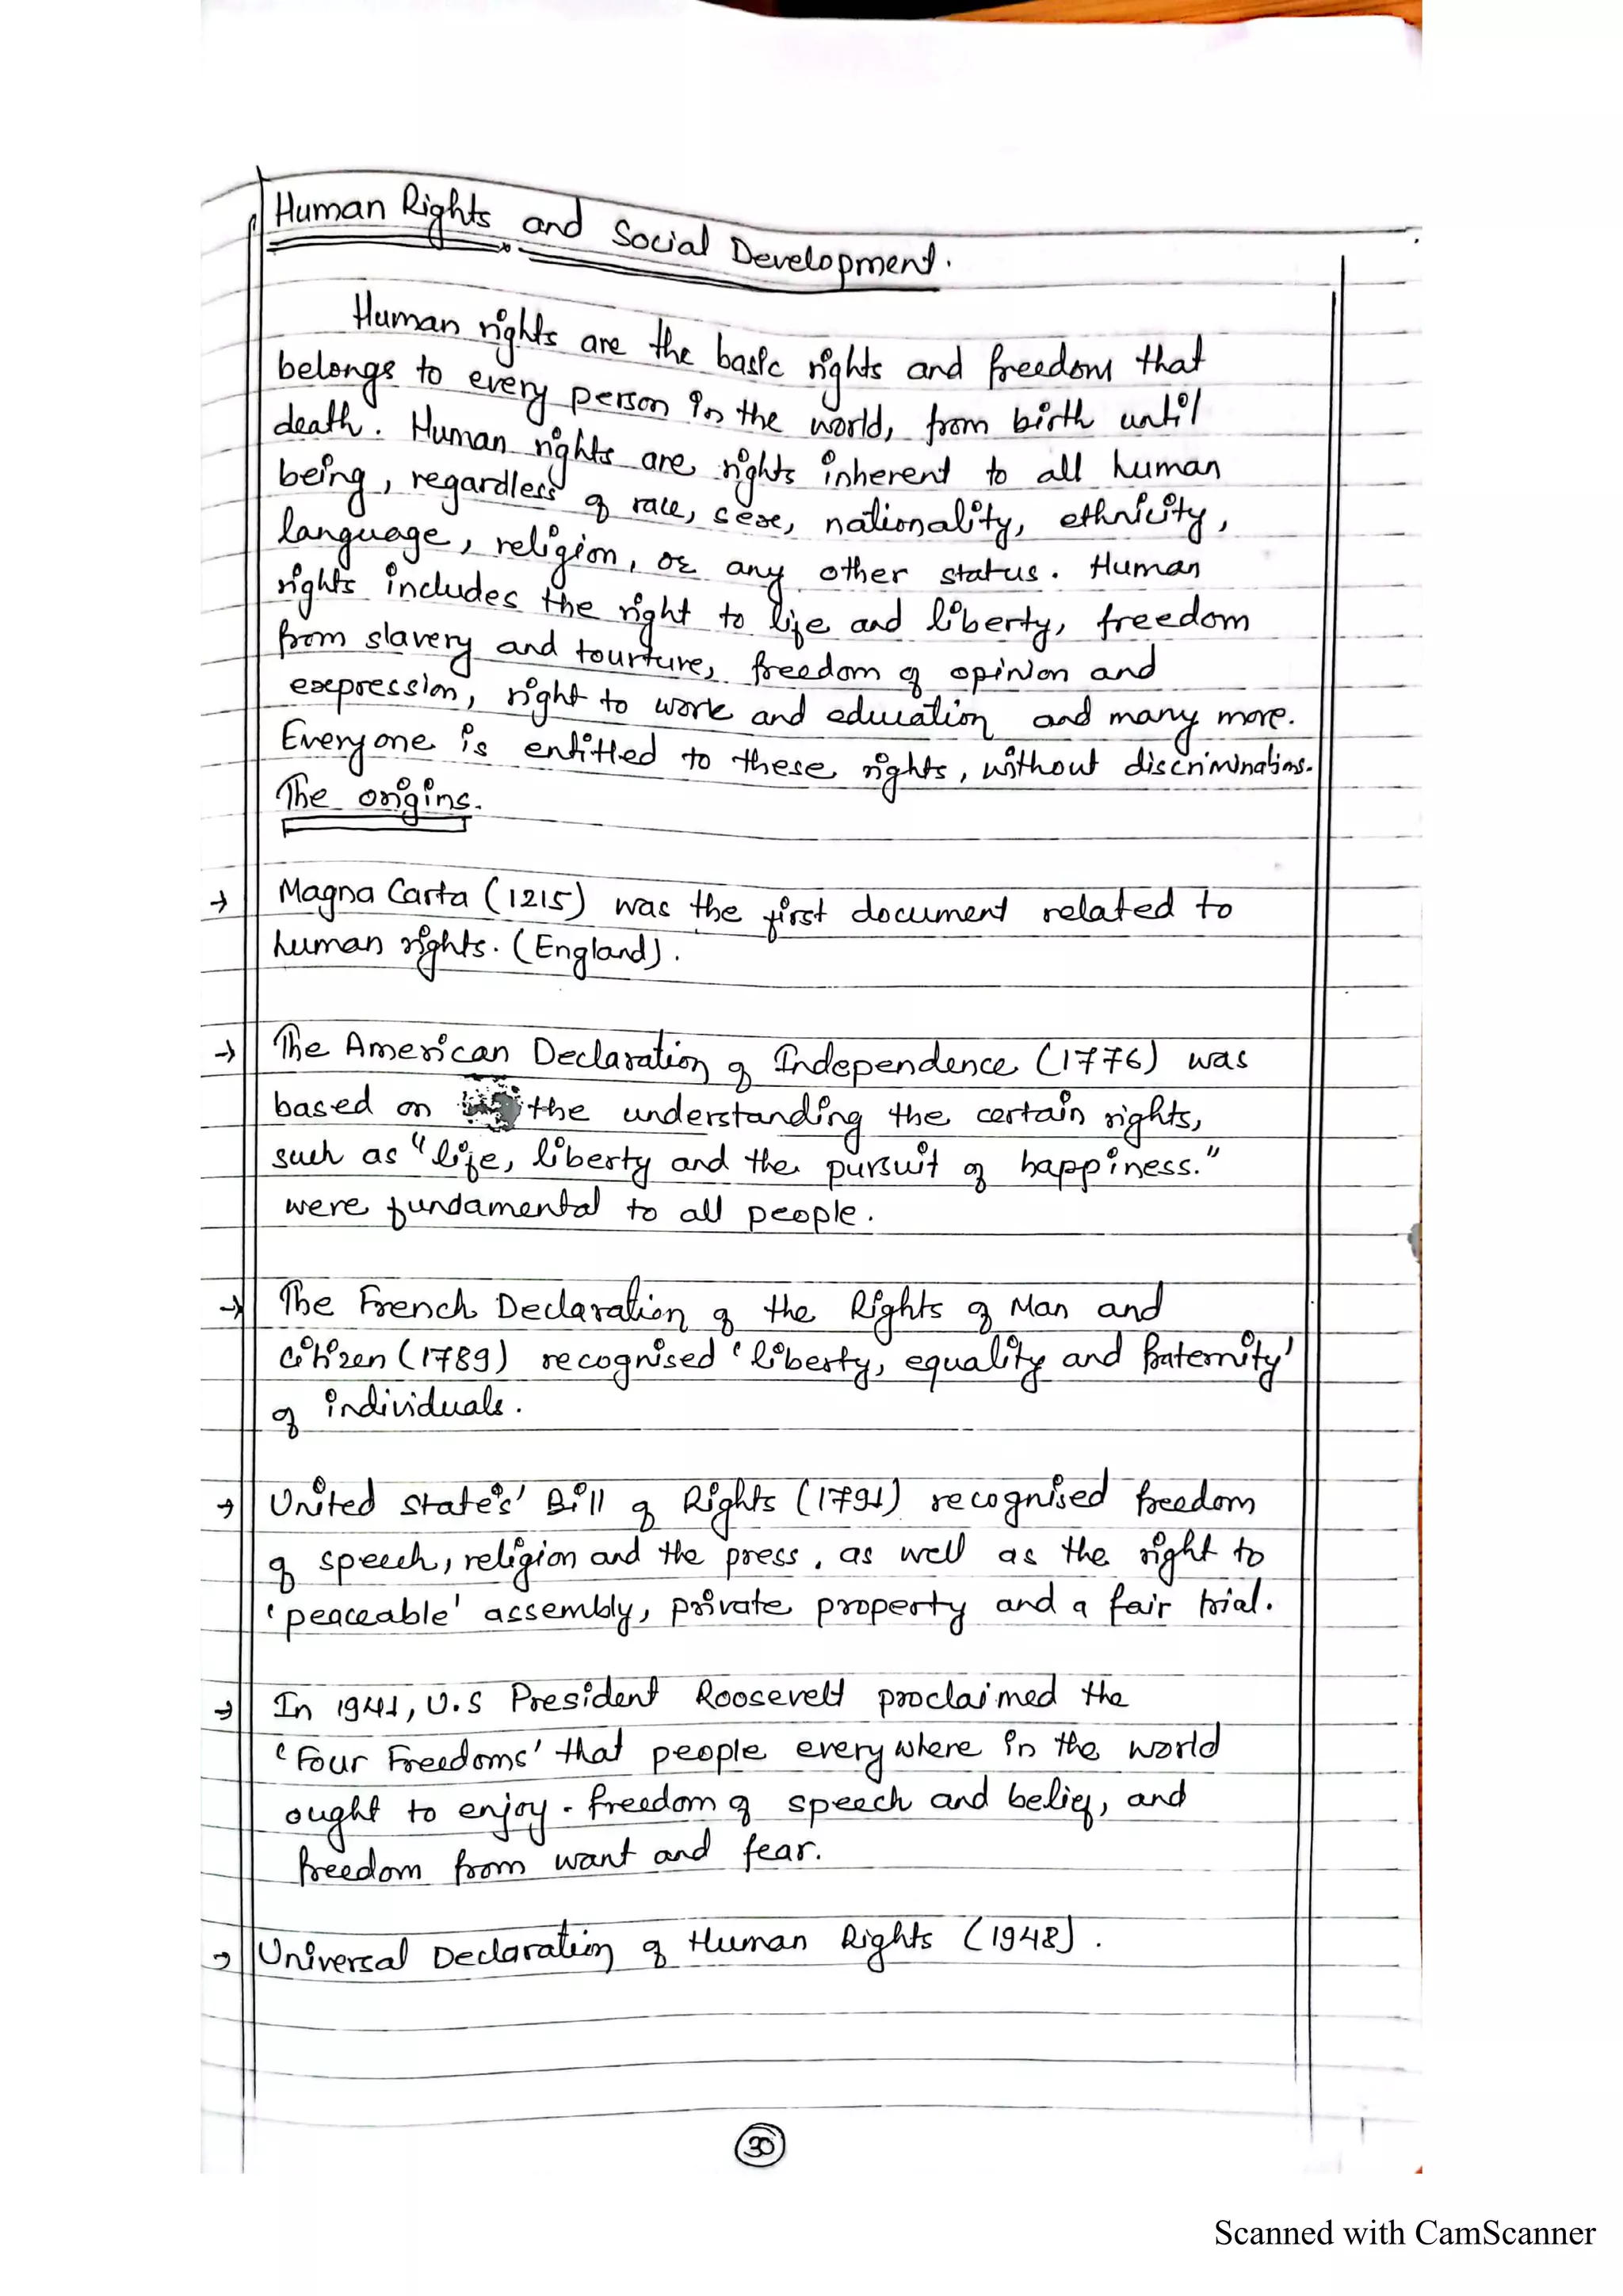 Human Rights and Social Development.
Human rights are the basic rights and freedom that
belongs to every person in the world, from birth until
death. Human rights are rights inherent to all human
being, regardless of race, sex, nationality, ethnicity,
language, religion, or any other status. Human
rights includes the right to life and liberty, freedom
from slavery and tourture, freedom of opinion and
expression, right to work and education and many more.
Everyone is entitled to these rights, without discriminations.
The origins.
→ Magna Carta (1215) was the first document related to
human rights. (England).
→ The American Declaration of Independence (1776) was
based on the understanding the certain rights,
such as "life, liberty and the pursuit of happiness."
were fundamental to all people.
→ The French Declaration of the Rights of Man and
Citizen (1789) recognised 'liberty, equality and fraternity'
of individuals.
→ United State's' Bill of Rights (1791) recognised freedom
of speech, religion and the press, as well as the right to
'peaceable' assembly, private property and a fair trial.
→ In 1941, U.S President Roosevelt proclaimed the
'Four Freedoms' that people everywhere in the world
ought to enjoy - freedom of speech and belief, and
freedom from want and fear.
→ Universal Declaration of Human Rights (1948).
30
Scanned with CamScanner